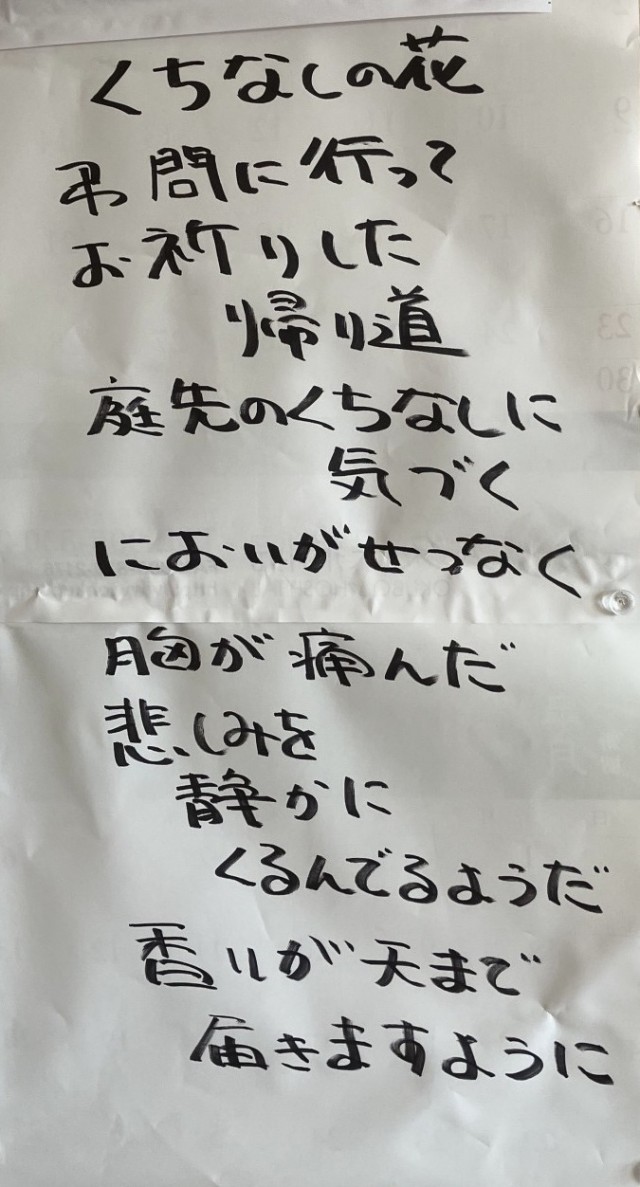 くちなしの花
弔問に行って
お祈りした
帰り道
庭先のくちなしに
気づく
においがせつなく
胸が痛んだ
悲しみを
静かに
くるんでるようだ
香りが天まで
届きますように